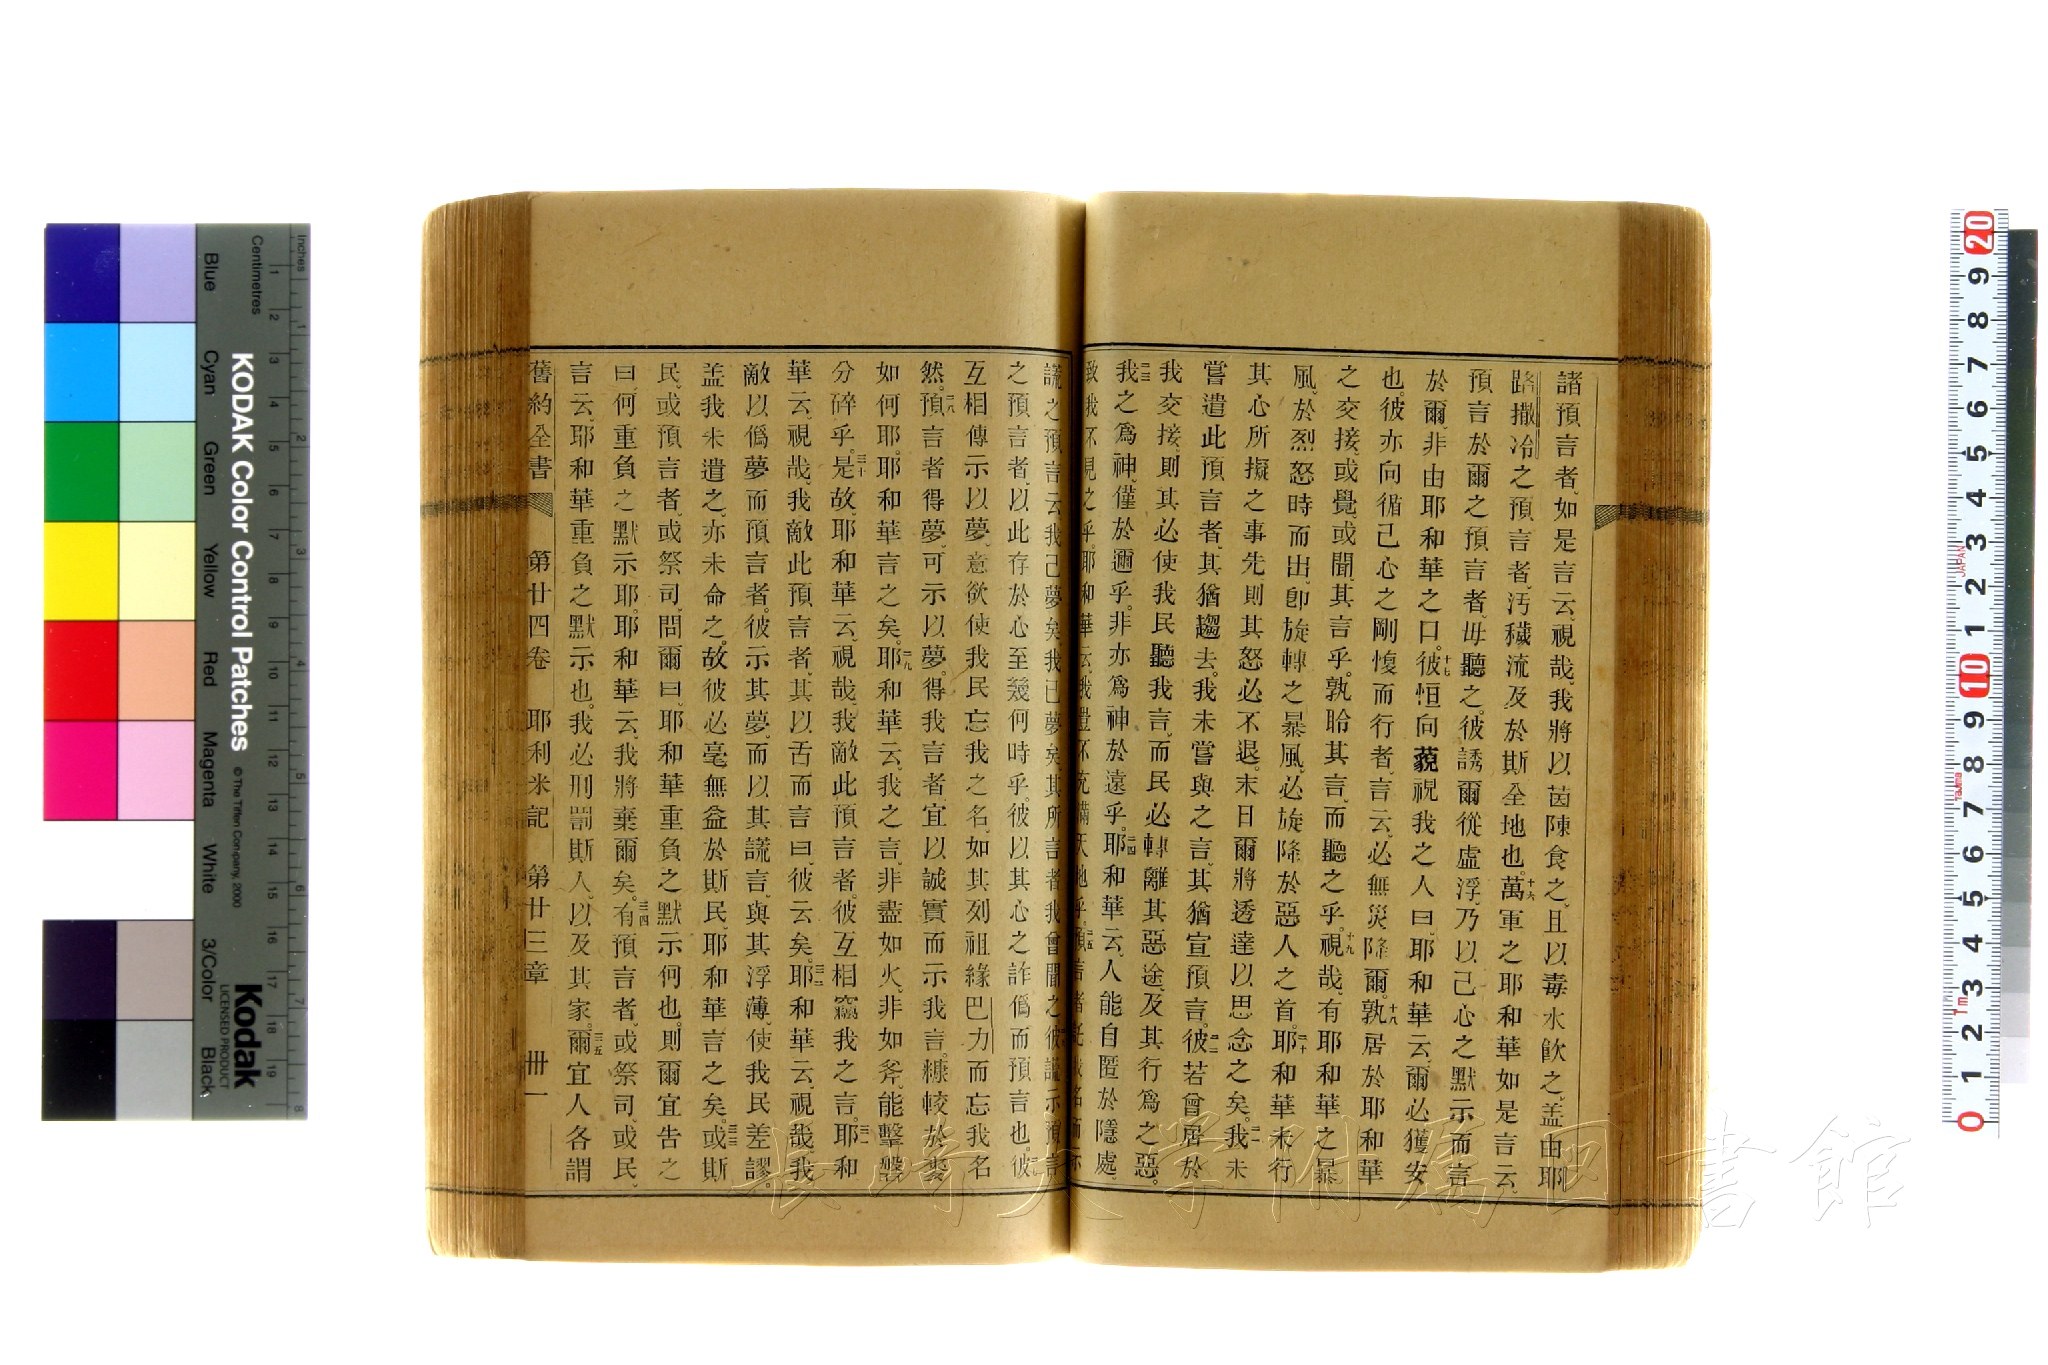 諸預言者、如是言云、視哉、我將以茵陳食之、且以毒水飮之、盖由耶
路撒冷之預言者、汚穢流及於斯全地也。十六萬軍之耶和華如是言云、
預言於爾之預言者、毋聽之。彼誘爾從虛浮、乃以己心之默示而言
於爾、非由耶和華之口。十七彼恒向藐視我之人曰、耶和華云、爾必獲安
也。彼亦向循己心之剛愎而行者、言云、必無災降爾。十八孰居於耶和華
之交接、或覺、或聞、其言乎。孰聆其言、而聽之乎。十九視哉、有耶和華之暴
風、於烈怒時而出、卽旋轉之暴風。必旋降於惡人之首。二十耶和華未行
其心所擬之事先、則其怒必不退。末日爾將透達以思念之矣。二一我未
嘗遣此預言者、其猶趨去。我未嘗與之言、其猶宣預言。二二彼若曾居於
我交接、則其必使我民聽我言、而民必轉離其惡途、及其行爲之惡。
二三我之爲神、僅於邇乎。非亦爲神於遠乎。二四耶和華云、人能自匿於隱處、
致我不見之乎。耶和華云、我豈不充滿天地乎。二五預言者託我名而亦
謊之預言云、我已夢矣、我已夢矣、其所言者我曾聞之、彼謊示預言
之預言者、以此存於心至幾何時乎。彼以其心之詐僞而預言也。二七彼
互相傳示以夢、意欲使我民忘我之名、如其列祖緣巴力而忘我名
然。二八預言者得夢、可示以夢。得我言者宜以誠實而示我言。糠較於麥
如何耶。耶和華言之矣。二九耶和華云、我之言、非盡如火、非如斧、能擊磐
分碎乎。三十是故、耶和華云、視哉、我敵此預言者。彼互相竊我之言。三一耶和
華云、視哉、我敵此預言者、其以舌而言曰、彼云矣。三二耶和華云、視哉、我
敵以僞夢而預言者。彼示其夢、而以其謊言、與其浮薄、使我民差謬。
盖我未遣之、亦未命之。故彼必毫無益於斯民、耶和華言之矣。三三或斯
民、或預言者、或祭司、問爾曰、耶和華重負之默示何也。則爾宜告之
曰、何重負之默示耶。耶和華云、我將棄爾矣。三四有預言者、或祭司、或民、
言云、耶和華重負之默示也。我必刑罰斯人、以及其家。三五爾宜人各謂
舊約全書　第廿四卷　耶利米記　第廿三章　卌一
長崎大学附属図書館
KODAK Color Control Patches
© The Tiffen Company, 2000
Kodak
LICENSED PRODUCT
Inches
Centimetres
Blue Cyan Green Yellow Red Magenta White 3/Color Black
JAPAN